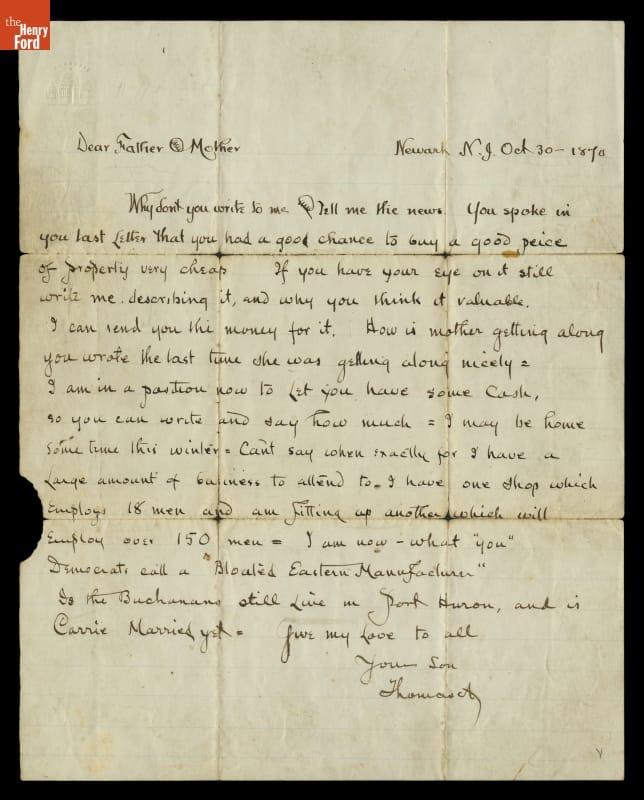 the
Henry
Ford
Dear Father & Mother
Newark N.J. Oct 30 - 1870
Why dont you write to me & tell me the news. You spoke in
you last Letter that you had a good chance to buy a good peice
of property very cheap If you have your eye on it still
write me. describing it, and why you think it valuable.
I can send you the money for it. How is mother getting along
you wrote the last time she was getting along nicely =
I am in a position now to Let you have some Cash,
so you can write and say how much = I may be home
some time this winter = Cant say when exactly for I have a
Large amount of business to attend to. I have one shop which
Employs 18 men and am fitting up another which will
Employ over 150 men = I am now - what "you"
Democrats call a "Bloated Eastern Manufacturer"
Is the Buchanans still Live in Port Huron, and is
Carrie Married yet = Give my Love to all
Your Son
Thomas A